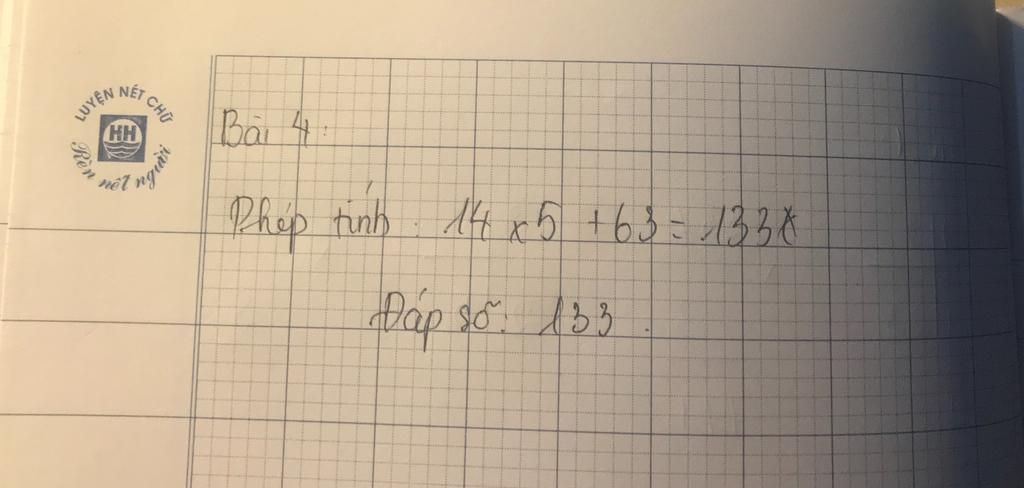 LUYỆN NÉT CHỮ
HH
Rèn nết người
Bài 4:
Phép tính: 14 x 5 + 63 = 133
Đáp số: 133.